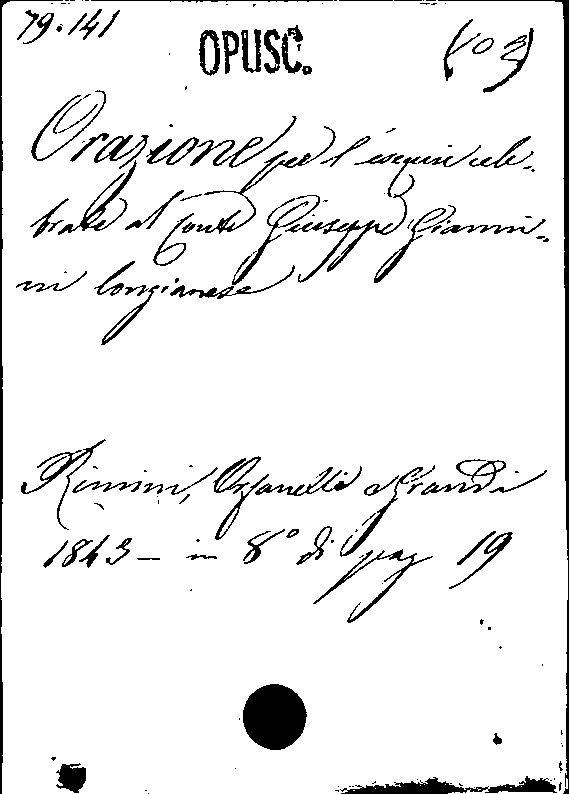 79.141
OPUSC.
(103)
Orazione per l'esequie cele-
brate al Conte Giuseppe Gianni-
ni longianese
Rimini, Orfanelli e Grandi
1843 – in 8° di pag 19